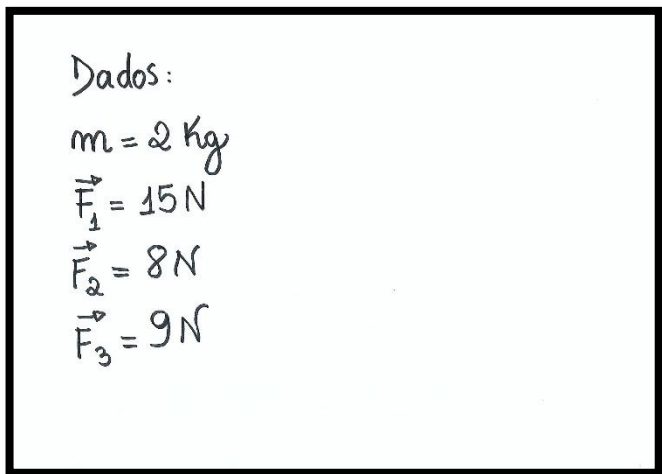 Dados:
m = 2 Kg
F⃗₁ = 15 N
F⃗₂ = 8 N
F⃗₃ = 9 N